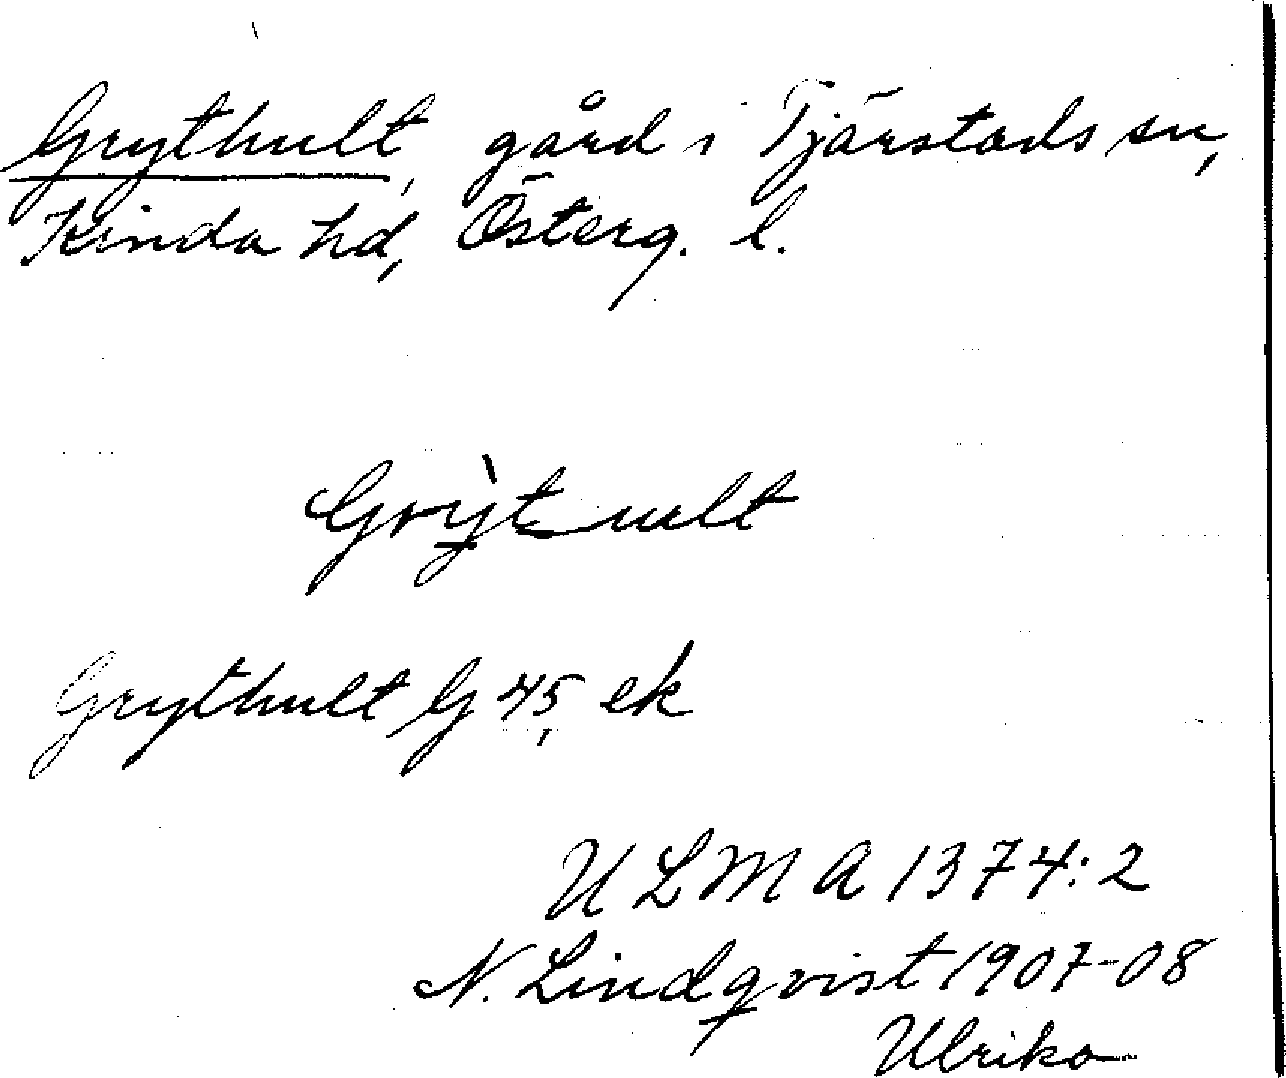 Grythult, gård i Tjärstads sn,
Kinda hd, Österg. l.
Grỳt ult
Grythult G 45, ek
ULMA 1374:2
N. Lindqvist 1907-08
Ulrika